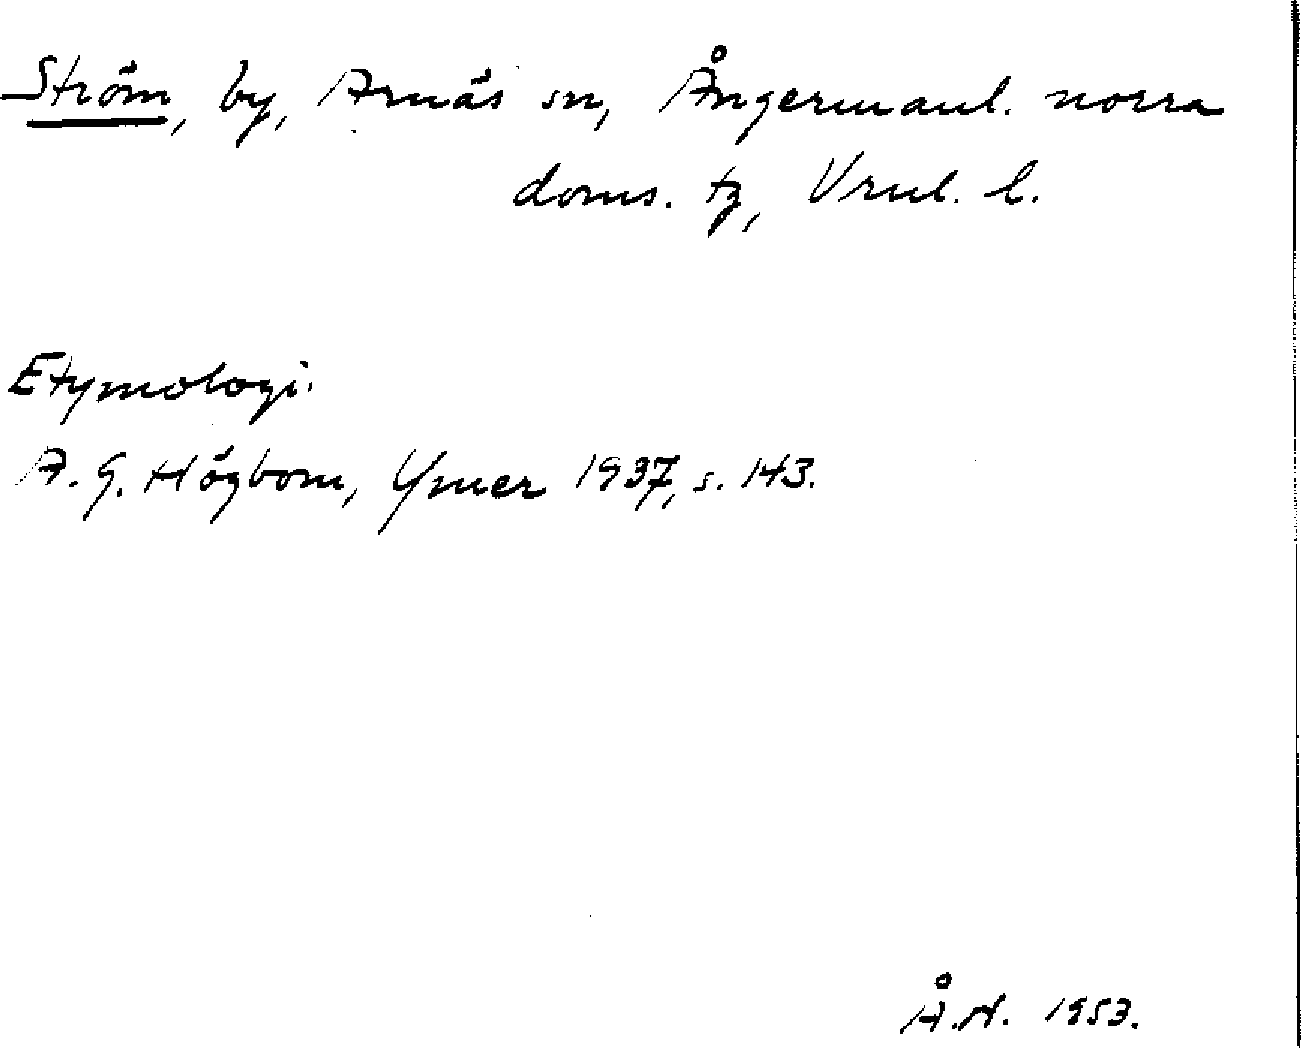 Ström, by, Arnäs sn, Ångermanl. norra
doms. tg, Vrnl. l.
Etymologi.
A. G. Högbom, Ymer 1937, s. 143.
Å.H. 1953.